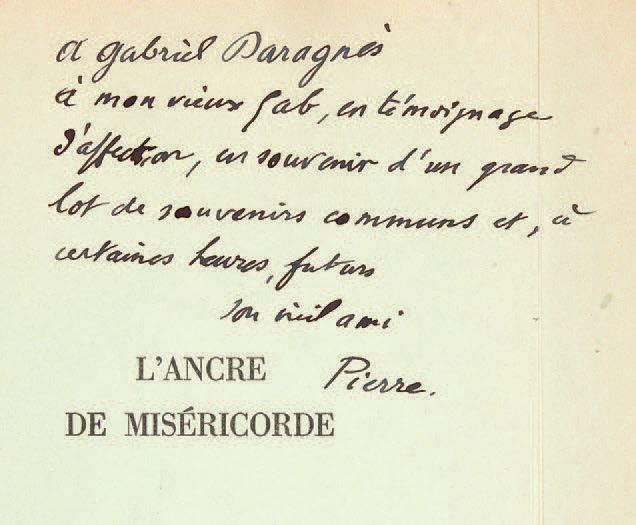 a Gabriel Daragnès
à mon vieux Gab, en témoignage
d'affection, en souvenir d'un grand
lot de souvenirs communs et, à
certaines heures, futurs
son vieil ami
Pierre.
L'ANCRE
DE MISÉRICORDE